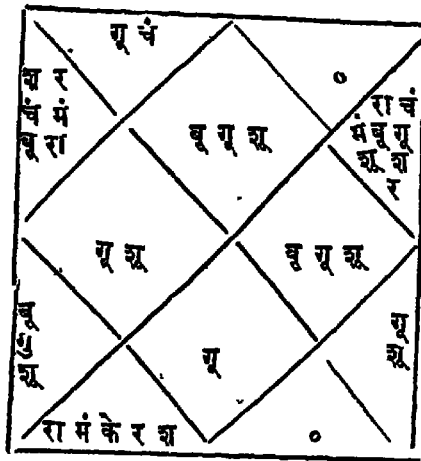 गू चं
०
श र
चं मं
बू रा
बू गू शू
रा चं
मं बू गू
शू श
र
गू शू
वु गू शू
बू
गु
शू
गू
गू
शू
रा मं के र श
०